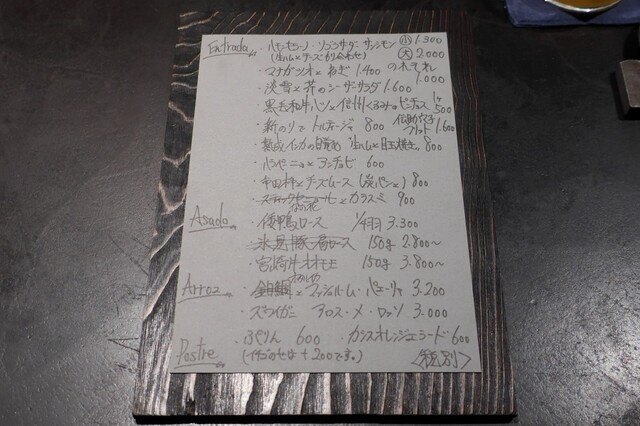 Entrada ・ハモンセラーノ・ソブラサーダ・サルシチョン (小) 1.300
(生ハムとチーズ盛り合わせ) (大) 2.000
・マナガツオとねぎ 1.400 のれそれ 1.000
・淡雪と芹のシーザーサラダ 1.600
・黒毛和牛ハツと信州くるみのピンチョス 1ヶ 500
・新のりで トルティージャ 800 伝助穴子 フリット 1.600
・熟成インカの目覚め "生ハムと目玉焼き" 800
・ハラペーニョとアンチョビ 600
・チーズムース 800
・とカラスミ 900
なの花
Asado ・倭鴨ロース 1/4羽 3.300
・氷見豚肩ロース 150g 2.800〜
・宮崎牛オオモモ 150g 3.800〜
Arroz ・とマッシュルーム・パエーリャ 3.200
・ズワイガニ アロス・メロッソ 3.000
Postre ・ぷりん 600 ・カシスオレンジジェラード 600
(イチゴのせは+200です。) <税別>